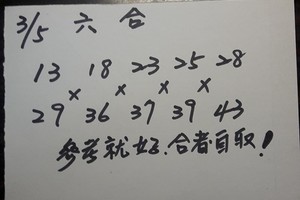 3/5 六合
13 18 23 25 28
× × × ×
29 36 37 39 43
參考就好.合者自取!